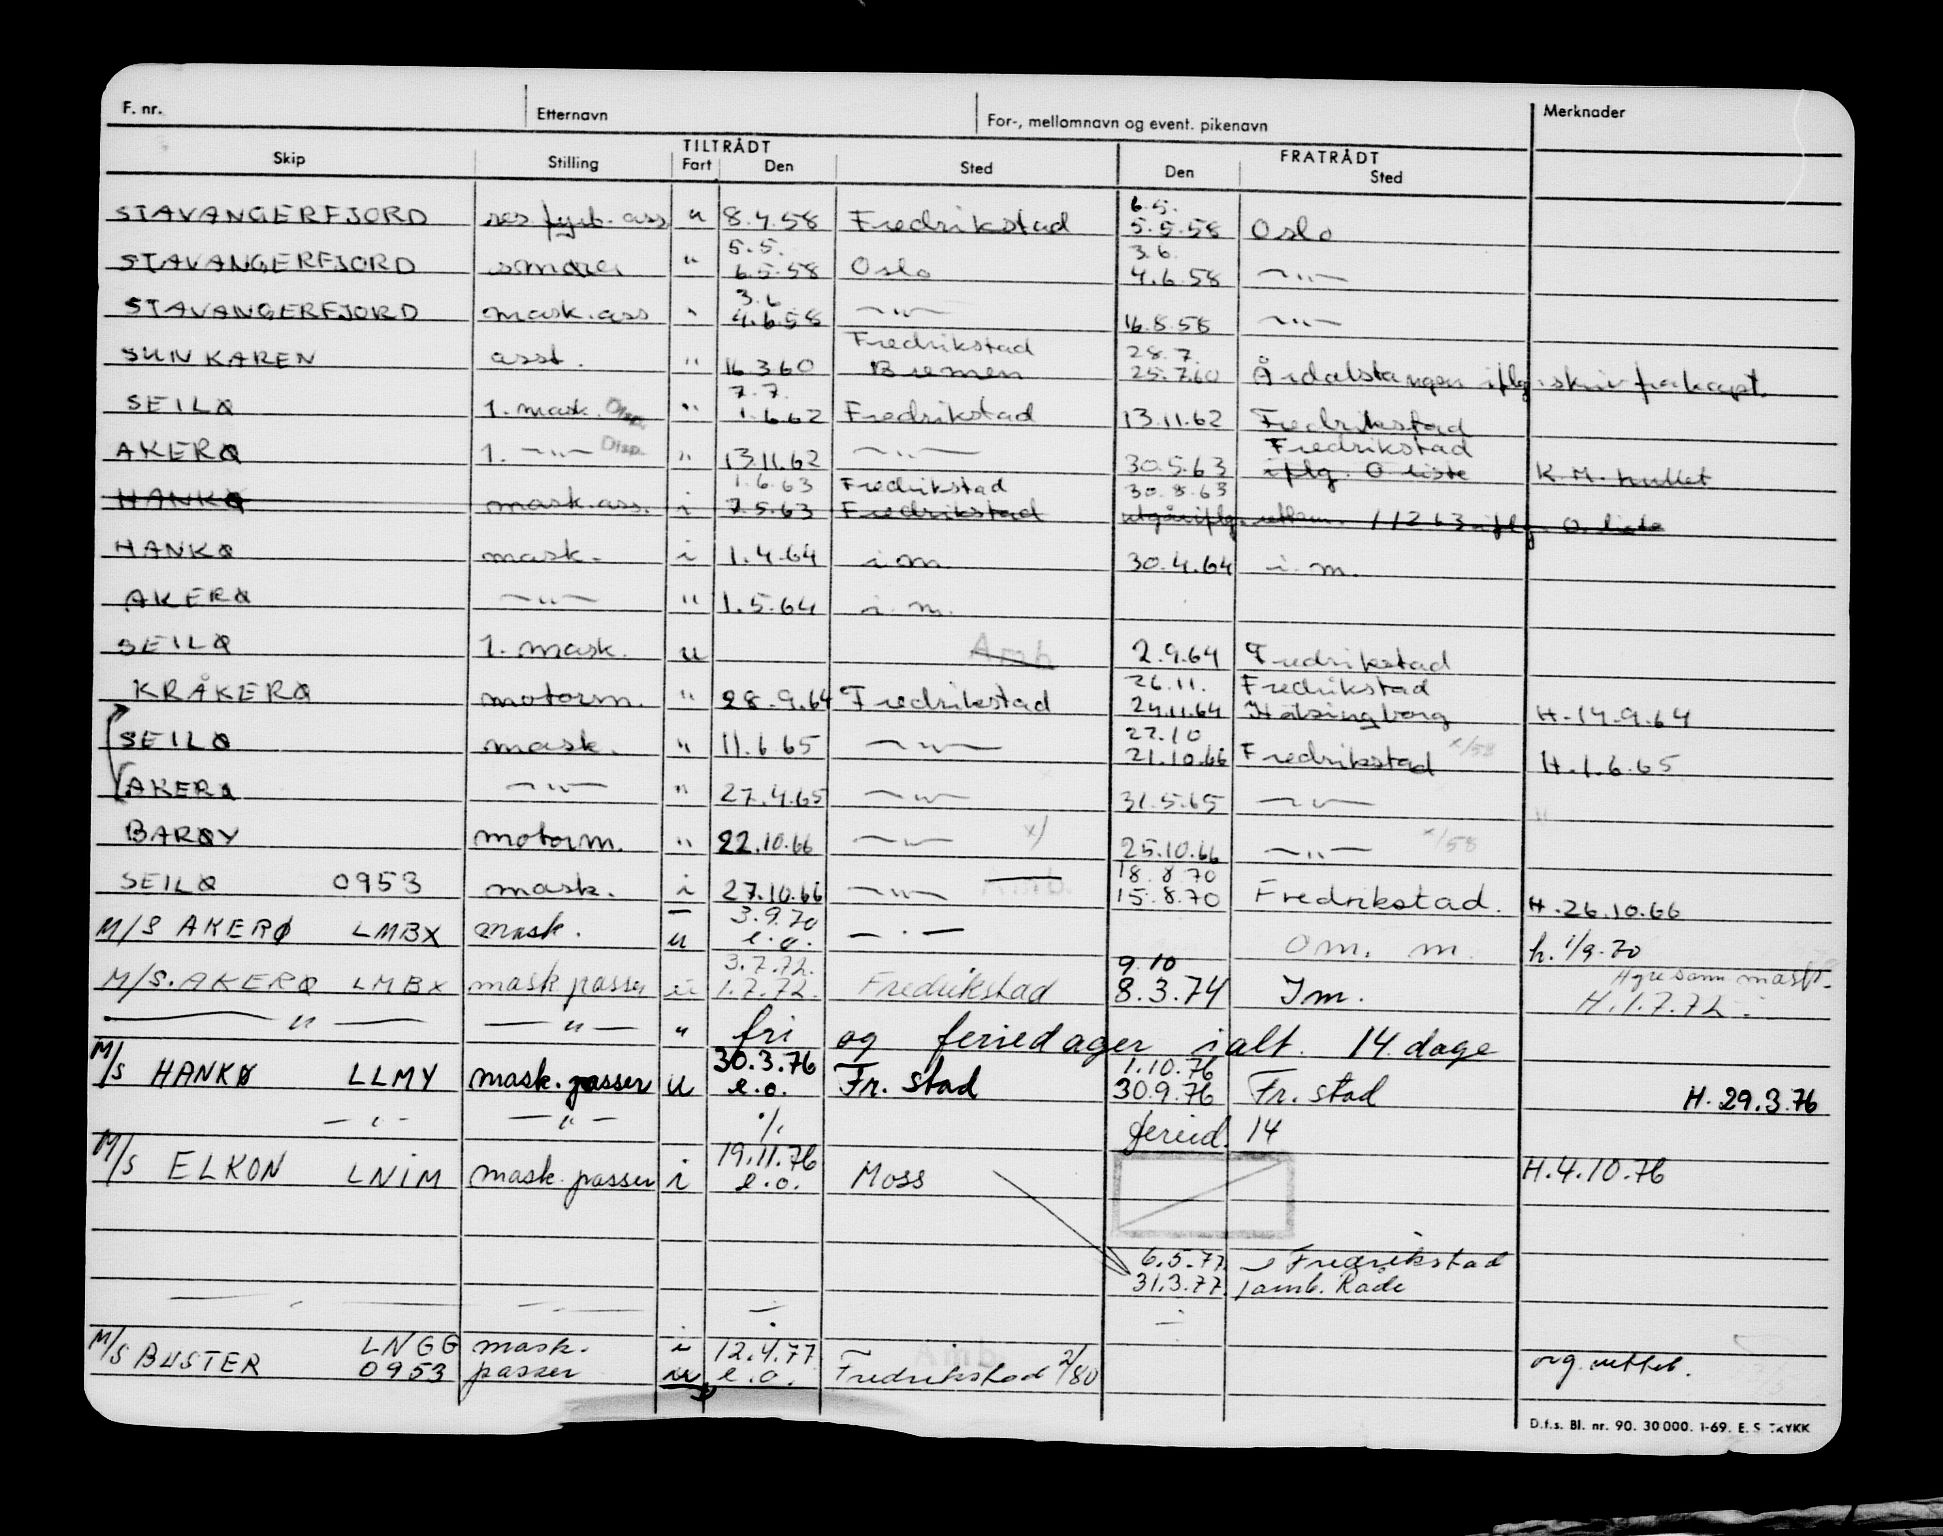 F. nr. Etternavn For-, mellomnavn og event. pikenavn Merknader
TILTRÅDT FRATRÅDT
Skip Stilling Fart Den Sted Den Sted
6.5.
STAVANGERFJORD res. fyrb. ass u 8.4.58 Fredrikstad 5.5.58 Oslo
5.5. 3.6.
STAVANGERFJORD smører " 6.5.58 Oslo 4.6.58 — " —
3.6
STAVANGERFJORD mask.ass " 4.6.58 — " — 16.8.58 — " —
Fredrikstad 28.7.
SUN KAREN asst. " 16.3.60 Bremen 25.7.60 Årdalstangen iflg. skriv fra kapt.
7.7.
SEILØ 1. mask. Disp. " 1.6.62 Fredrikstad 13.11.62 Fredrikstad
Fredrikstad
AKERØ 1. — " — Disp. " 13.11.62 — " — 30.5.63 iflg. O liste K.M. nullet
1.6.63 Fredrikstad 30.8.63
HANKØ mask.ass. i 7.5.63 Fredrikstad utgår iflg. O. liste
HANKØ mask. i 1.4.64 i.m. 30.4.64 i.m.
AKERØ — " — " 1.5.64 i.m.
SEILØ 1. mask. u Amb 2.9.64 Fredrikstad
26.11. Fredrikstad
KRÅKERØ motorm. " 28.9.64 Fredrikstad 24.11.64 Hälsingborg H.14.9.64
22.10
SEILØ mask. " 11.6.65 — " — 21.10.66 Fredrikstad x/58 H.1.6.65
AKERØ — " — " 27.4.65 — " — 31.5.65 — " —
BARØY motorm. " 22.10.66 — " — x/ 25.10.66 — " — x/58
18.8.70
SEILØ 0953 mask. i 27.10.66 — " — Amb. 15.8.70 Fredrikstad. H.26.10.66
3.9.70
M/S AKERØ LMBX mask. u e.o. — " — Om. m. h. 1/9.70
3.7.72. 9.10 Hyre som maskp.
M/S. AKERØ LMBX mask passer u 1.7.72. Fredrikstad 8.3.74 Im. H.1.7.72.
— " — — " — " fri og feriedager ialt. 14 dage
30.3.76 1.10.76
M/S HANKØ LLMY mask. passer u e.o. Fr. stad 30.9.76 Fr. stad H. 29.3.76
— " — — " — % feried. 14
19.11.76
M/S ELKON LNIM mask. passer i e.o. Moss H.4.10.76
6.5.77. Fredrikstad
31.3.77. amb. Råde
— " — — " — ÷ ÷
M/S BUSTER LNGG mask. i 12.4.77. Amb
0953 passer u e.o. Fredrikstad 2/80 org. nettol.
D.f.s. Bl. nr. 90. 30 000. 1-69. E. S. TRYKK